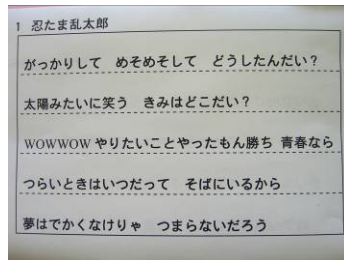 1 忍たま乱太郎
がっかりして めそめそして どうしたんだい？
太陽みたいに笑う きみはどこだい？
WOWWOW やりたいことやったもん勝ち 青春なら
つらいときはいつだって そばにいるから
夢はでかくなけりゃ つまらないだろう